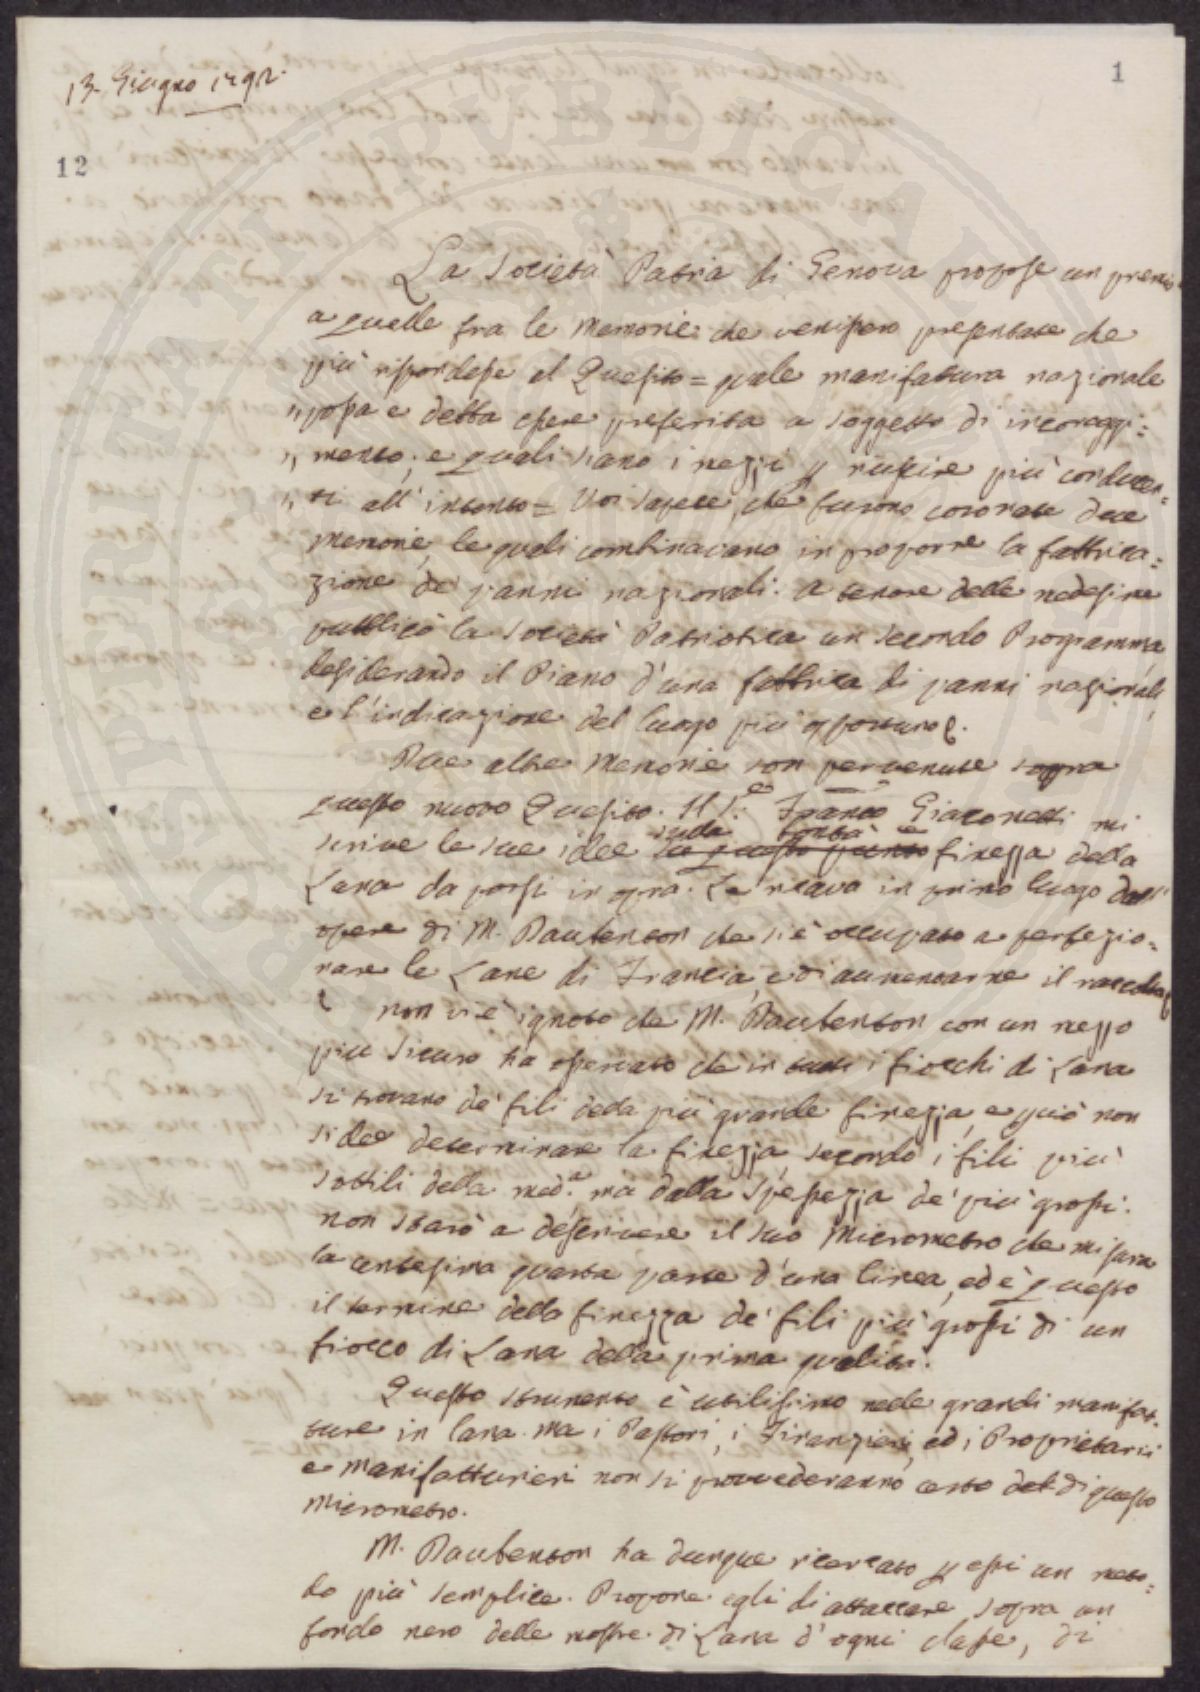 13. Giugno 1792.
1
12
La Società Patria di Genova propose un premio
a quelle fra le Memorie che venissero presentate che
più rispondesse al Quesito = quale manifattura nazionale
„ possa e debba essere preferita a soggetto di incoraggi=
„ mento, e quali siano i mezzi p riuscire più conducen=
„ ti all' intento = Voi sapete, che furono coronate due
memorie, le quali combinavano in proporre la fabbrica=
zione de' panni nazionali. a tenore delle medesime
pubblicò la Società Patriotica un secondo Programma,
desiderando il Piano d'una fabbrica di panni nazionali,
e l'indicazione del luogo più opportuno.
Due altre Memorie son pervenute sopra
questo nuovo Quesito. Il S.r Franco Giacometti mi
scrive le sue idee sulla bontà e finezza della
Lana da porsi in opra. Le ricava in primo luogo dall'
opere di M. Daubenton che si è occupato a perfezio=
nare le Lane di Francia, e di aumentarne il raccolto.
non vi è ignoto che M. Daubenton con un mezzo
più sicuro ha osservato che in tutti i fiocchi di Lana
si trovano de' fili della più grande finezza, e però non
si dee determinare la finezza secondo i fili più
sottili della med.a ma dalla spessezza de' più grossi.
non starò a descrivere il suo Micrometro che misura
la centesima quarta parte d'una linea, ed è questo
il termine della finezza de' fili più grossi di un
fiocco di Lana della prima qualità.
Questo strumento è utilissimo nelle grandi manifat=
ture in lana. ma i Pastori, i Finanzieri, ed i Proprietarii
e manifatturieri non si provvederanno certo di questo
Micrometro.
M. Daubenton ha dunque ricercato p essi un meto=
do più semplice. Propone egli di attaccare sopra un
fondo nero delle mostre di Lana d' ogni classe, di